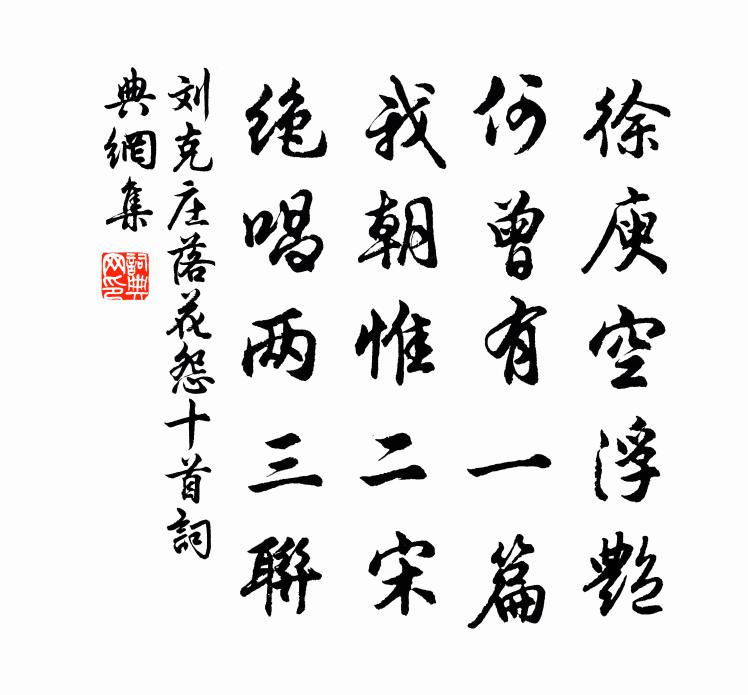 徐庾空浮艷
何曾有一篇
我朝惟二宋
绝唱两三聯
刘克庄落花怨十首詞
典網集
詞典
网印